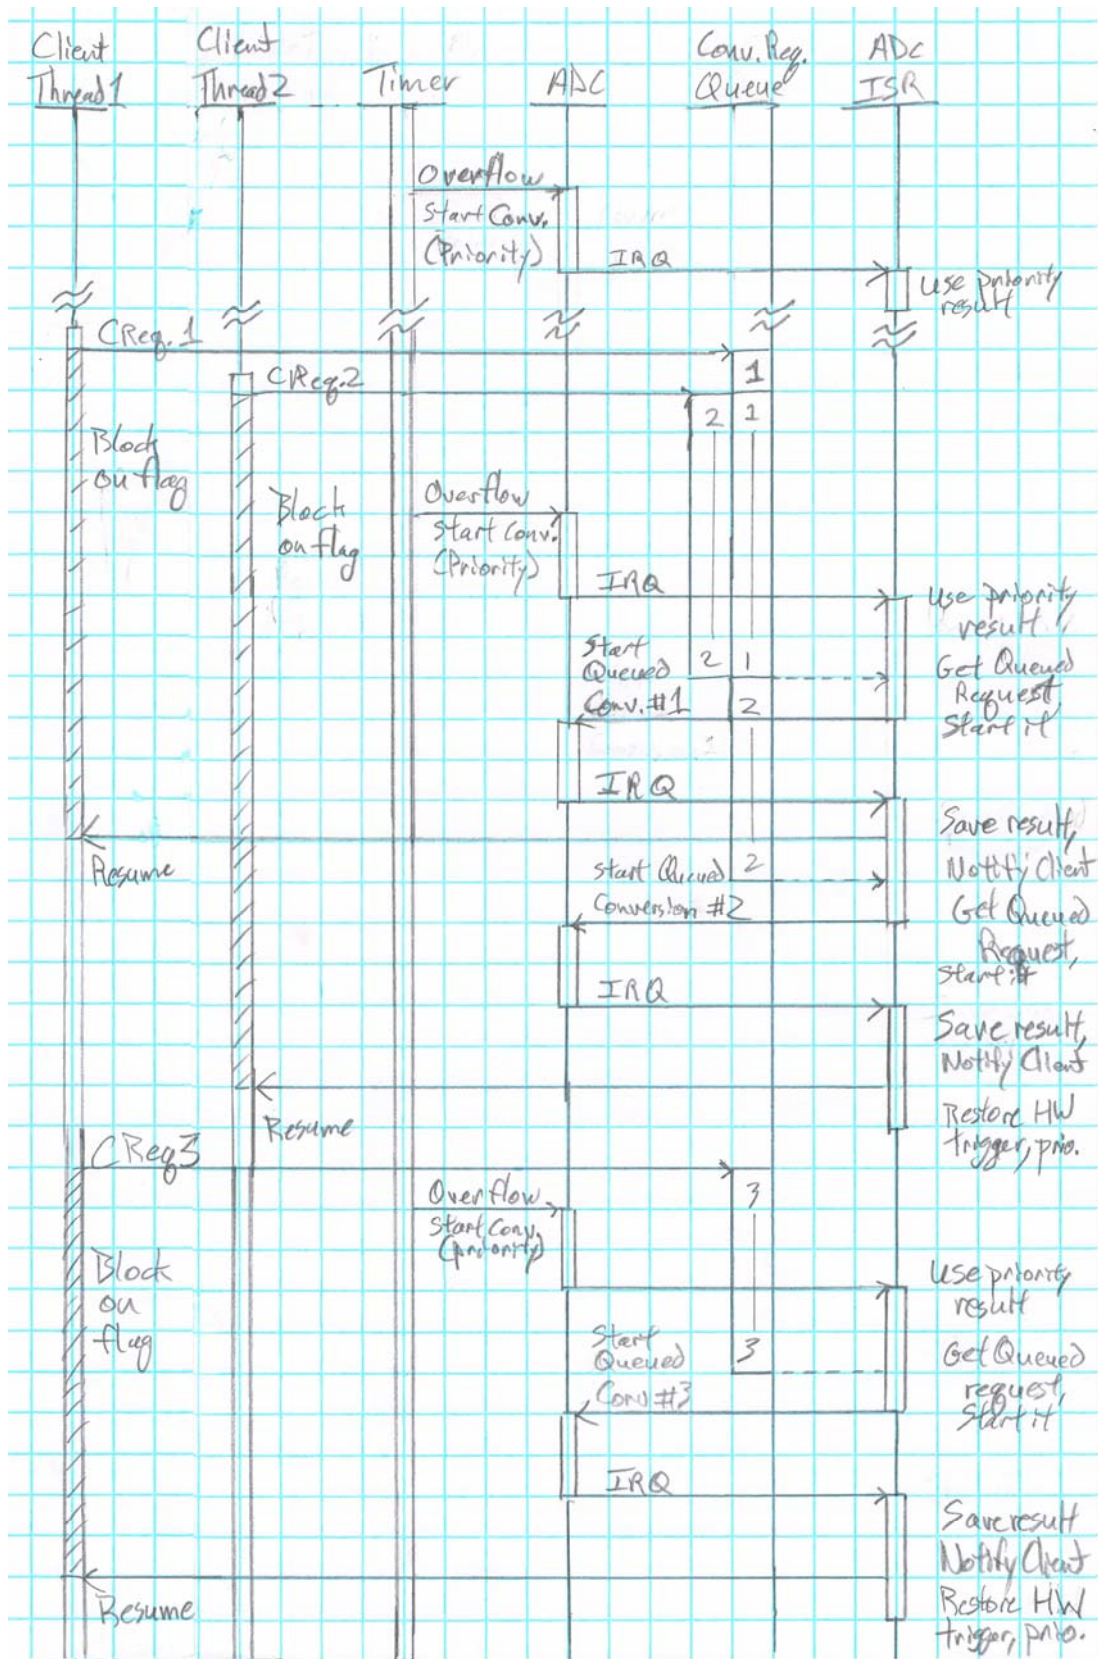 Client
Thread 1
Client
Thread 2
Timer
ADC
Conv. Req.
Queue
ADC
ISR
Overflow
Start Conv.
(Priority)
IRQ
Use priority
result
CReq. 1
1
CReq. 2
2 1
Block
on flag
Block
on flag
Overflow
Start Conv.
(Priority)
IRQ
Use priority
result,
Start
Queued
Conv. #1
2 1
2
Get Queued
Request,
Start it
IRQ
Save result,
Notify Client
Resume
Start Queued
Conversion #2
2
Get Queued
Request,
Start it
IRQ
Save result,
Notify Client
Resume
Restore HW
trigger, prio.
CReq 3
3
Overflow
Start Conv.
(priority)
Block
on
flag
Use priority
result
Start
Queued
Conv #3
3
Get Queued
request,
Start it
IRQ
Save result
Notify Client
Resume
Restore HW
trigger, prio.